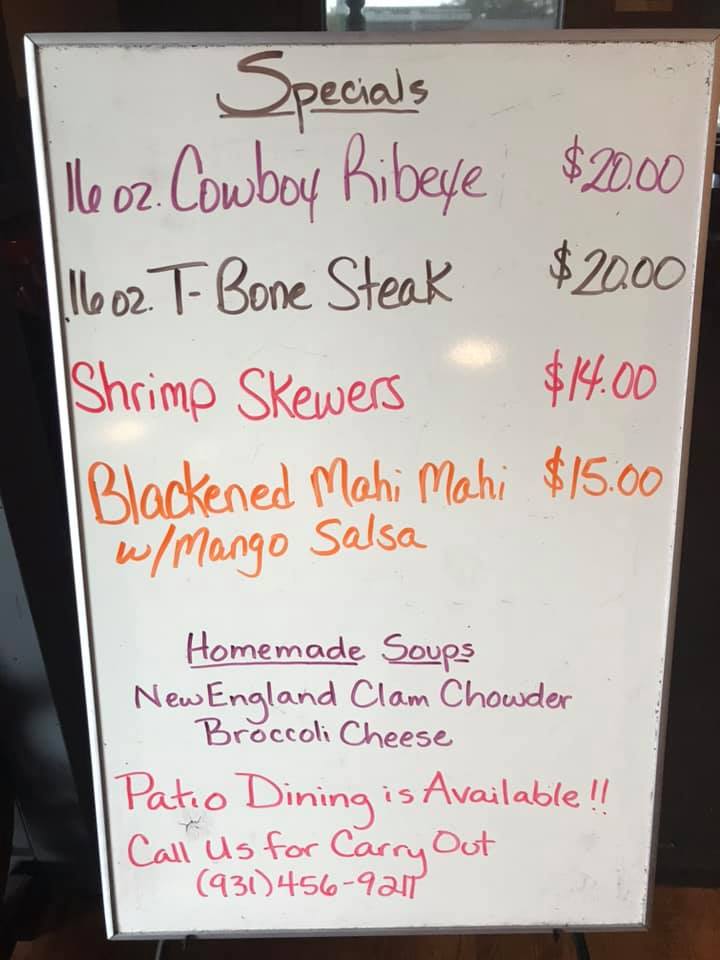 Specials
16 oz. Cowboy Ribeye $20.00
16 oz. T-Bone Steak $20.00
Shrimp Skewers $14.00
Blackened Mahi Mahi $15.00
w/Mango Salsa
Homemade Soups
New England Clam Chowder
Broccoli Cheese
Patio Dining is Available!!
Call Us for Carry Out
(931)456-9217